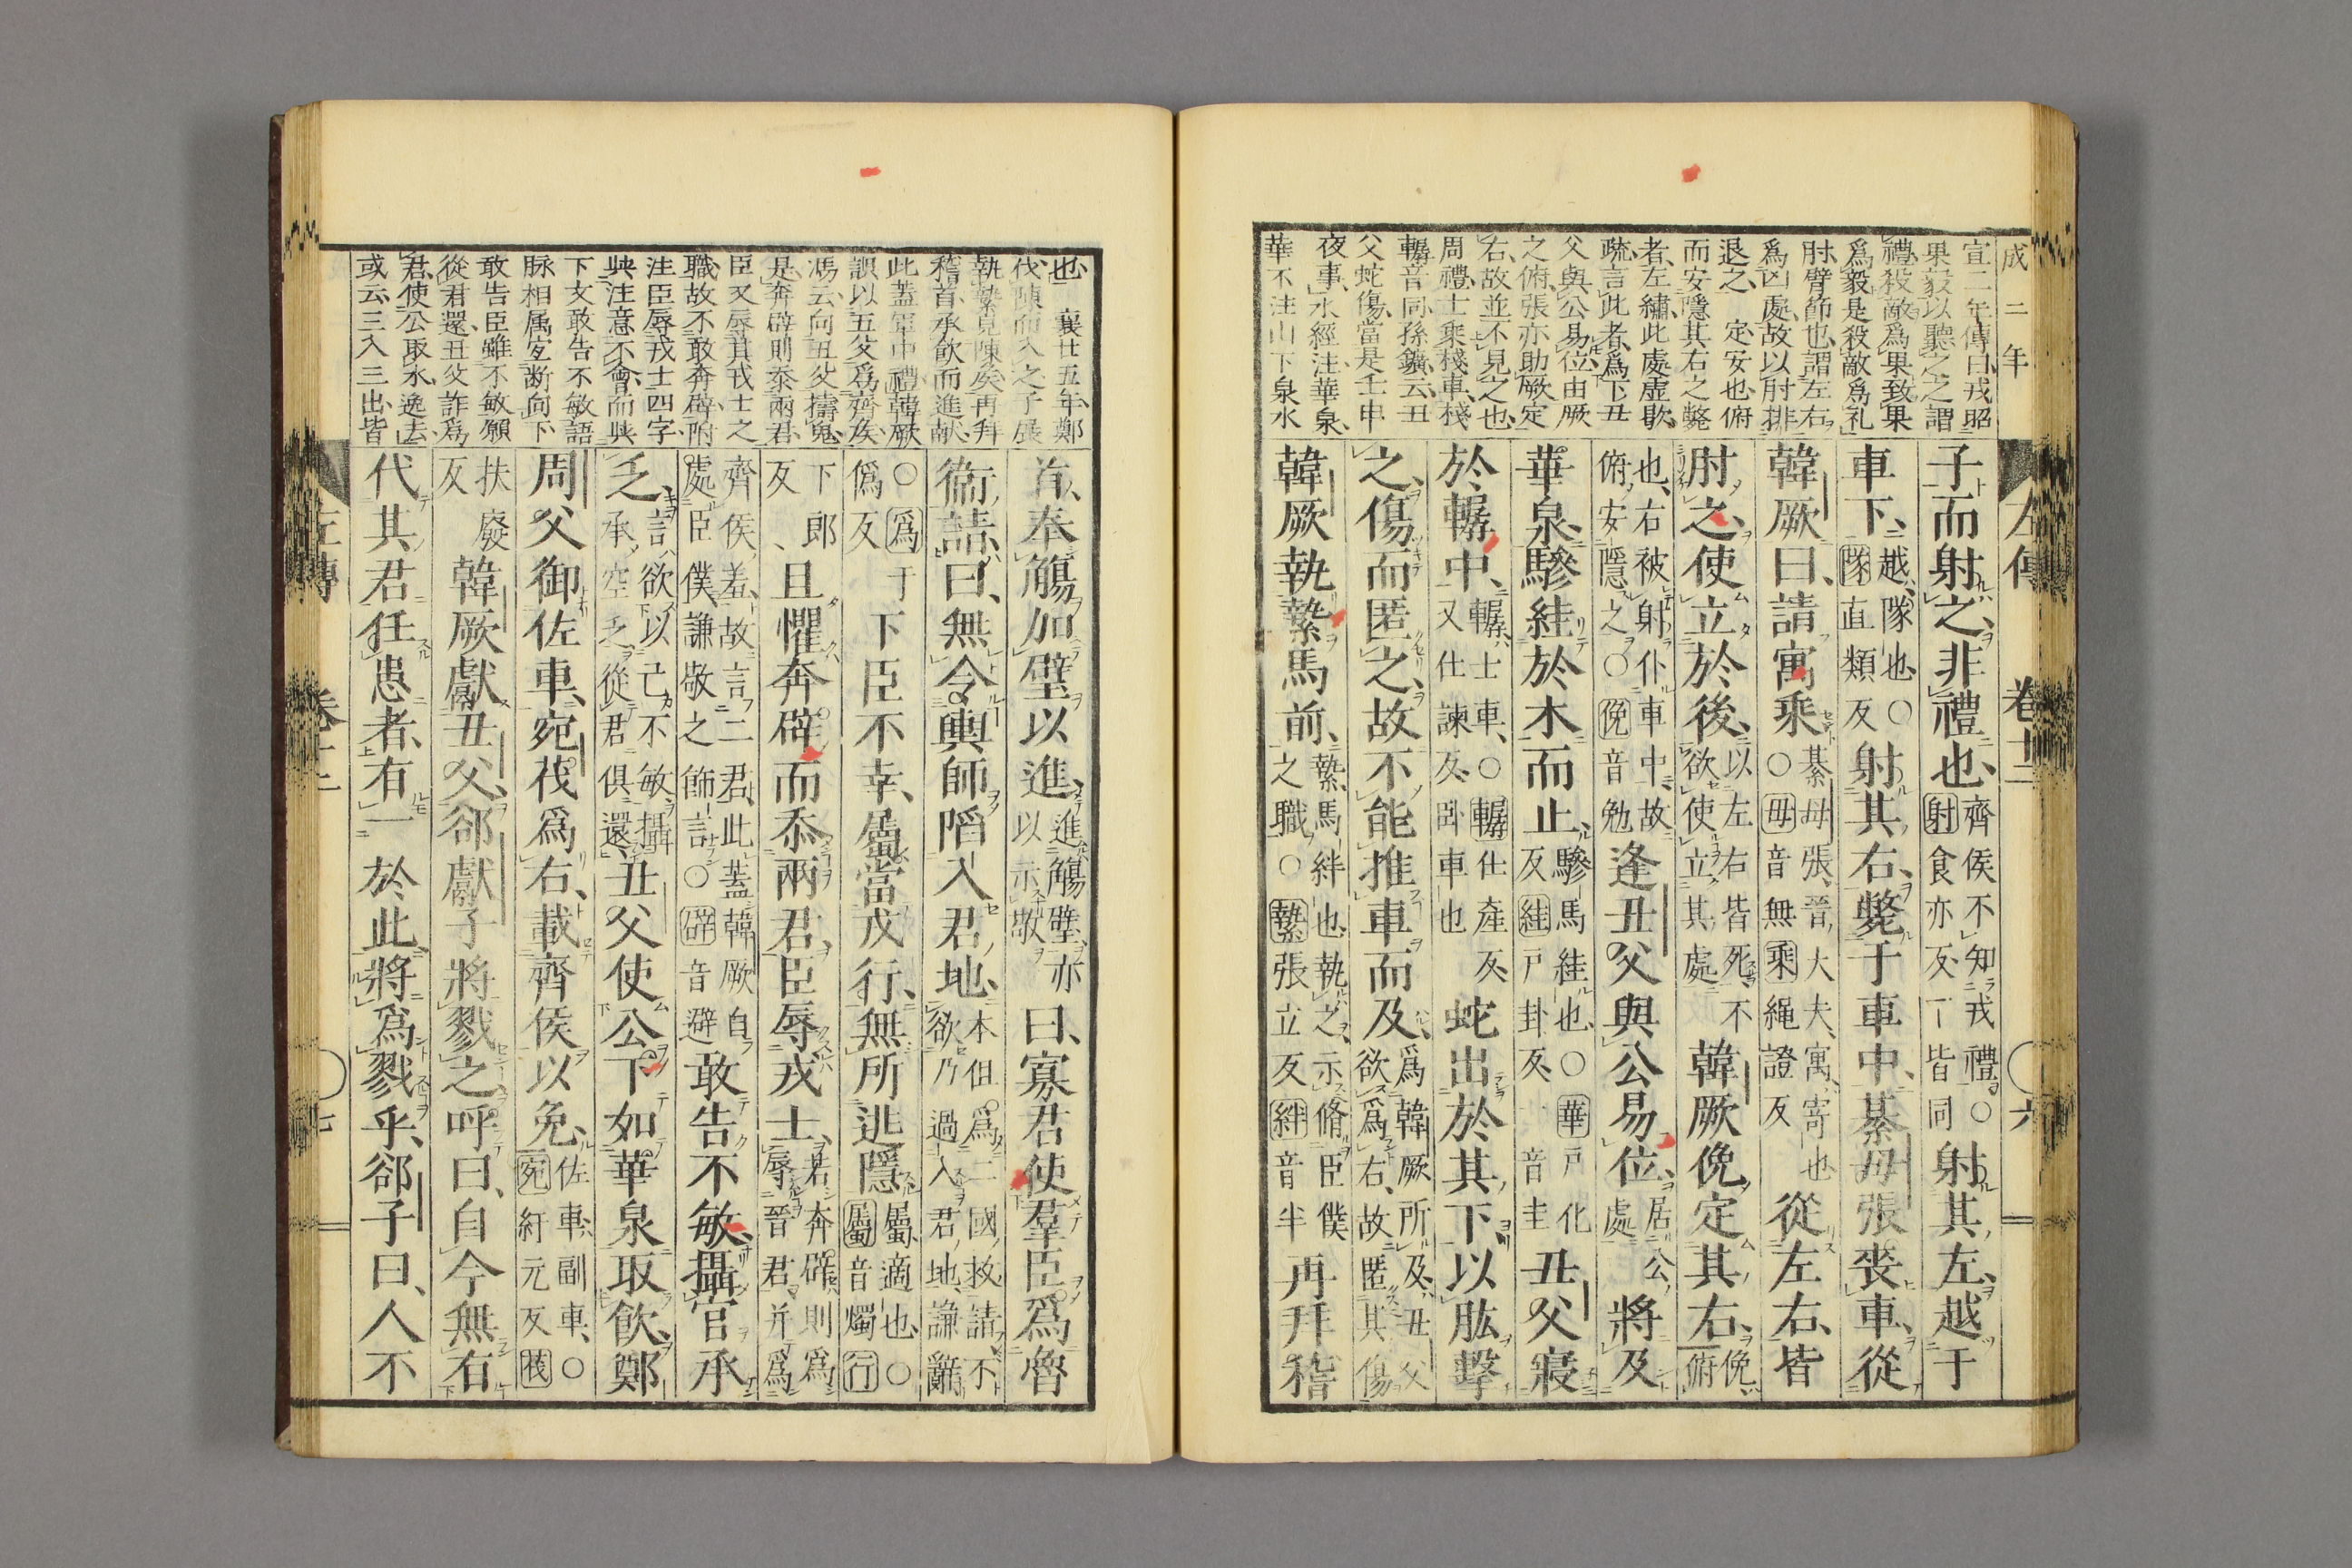 成二年
宣二年傳曰戎昭
果毅以聽之之謂
禮殺敵爲果致果
爲毅是殺敵爲礼
肘臂節也謂左右
爲凶處故以肘排
退之 定安也俯
而安隱其右之斃
者左繡此處虚歇
疏言此者爲下丑
父與公易位由厥
之俯張亦助厥定
右故並不見之也
周禮士乘棧車棧
轏音同孫鑛云丑
父蛇傷當是壬申
夜事水經注華泉
華不注山下泉水
左傳 卷十二 六
子而射之非禮也齊侯不知戎禮○
射食亦反下皆同射其左越于
車下越隊也○隊直類反射其右斃于車中綦毋張喪車從
韓厥曰請寓乘綦毋張晉大夫寓寄也
○毋音無乘繩證反從左右皆
肘之使立於後以左右皆死不
欲使立其處韓厥俛定其右俛
俯也右被射仆車中故
俯安隱之○俛音勉逢丑父與公易位居公
處將及
華泉驂絓於木而止驂馬絓也○華戶化
反絓戶卦反一音圭丑父寢
於轏中轏士車○轏仕產反
又仕諫反臥車也蛇出於其下以肱擊
之傷而匿之故不能推車而及爲韓厥所及丑父
欲爲右故匿其傷
韓厥執縶馬前縶馬絆也執之示脩臣僕
之職○縶張立反絆音半再拜稽
也 襄廿五年鄭
伐陳而入之子展
執縶見陳侯再拜
稽首承飮而進獻
此蓋軍中禮韓厥
誤以五父爲齊侯
馮云向丑父擣鬼
是奔辟則忝兩君
臣又辱其戎士之
職故不敢奔辟附
注臣辱戎士四字
與注意不會而與
下文敢告不敏語
脉相属宜断向下
敢告臣雖不敏願
從君還丑父詐爲
君使公取水逸去
或云三入三出皆
首奉觴加璧以進進觴璧亦
以示敬曰寡君使羣臣爲魯
衞請曰無令輿師陷入君地本但爲二國救請不
欲乃過入君地謙辭
○爲于
僞反下臣不幸屬當戎行無所逃隱屬適也○
屬音燭行
下郎
反且懼奔辟而忝兩君臣辱戎士若奔辟則爲
辱晉君并爲
齊侯羞故言二君此蓋韓厥自
處臣僕謙敬之飾言○辟音避敢告不敏攝官承
乏言欲以己不敏攝
承空乏從君俱還丑父使公下如華泉取飮鄭
周父御佐車宛茷爲右載齊侯以免佐車副車○
宛紆元反茷
扶廢
反韓厥獻丑父郤獻子將戮之呼曰自今無右
代其君任患者有一於此將爲戮乎郤子曰人不
左傳 卷十二 七